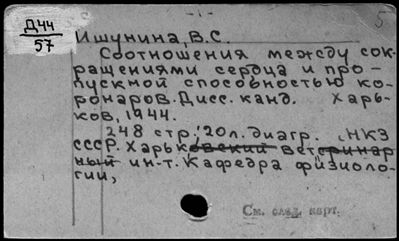 Д44
57
5
Ишунина, В.С.
Соотношения между сок-
ращениями сердца и про-
пускной способностью ко-
ронаров. Дисс. канд. Харь-
ков, 1944.
248 стр., 20л. диагр. (НКЗ
СССР. Харьковский ветеринар
ный ин-т. Кафедра физиоло-
гии,
См. след. карт.